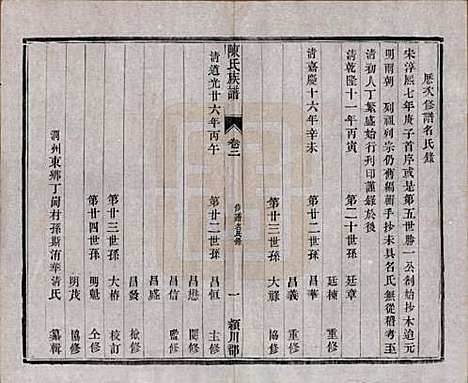 歷次修譜名氏錄
宋淳熙七年庚子首序或是第五世勝一公創始抄本迨元
明兩朝列祖列宗仍舊編輯手抄未具名氏無從稽考至
清初人丁繁盛始行刊印謹錄於後
清乾隆十一年丙寅 第二十世孫 廷章 重修
廷棟
清嘉慶十六年辛未 第廿二世孫 昌華 重修
昌義
第廿三世孫 大 協修
陳氏族譜 卷二 修譜名氏錄 一 潁川郡
清道光廿六年丙午 第廿二世孫 昌恒 主修
昌懋 閱修
昌信 監修
昌盛
昌發 協修
第廿三世孫 大椿 校訂
第廿四世孫 明魁 仝修
明茂 協修
潤州東鄉丁岡村孫斯洧華清氏 纂輯